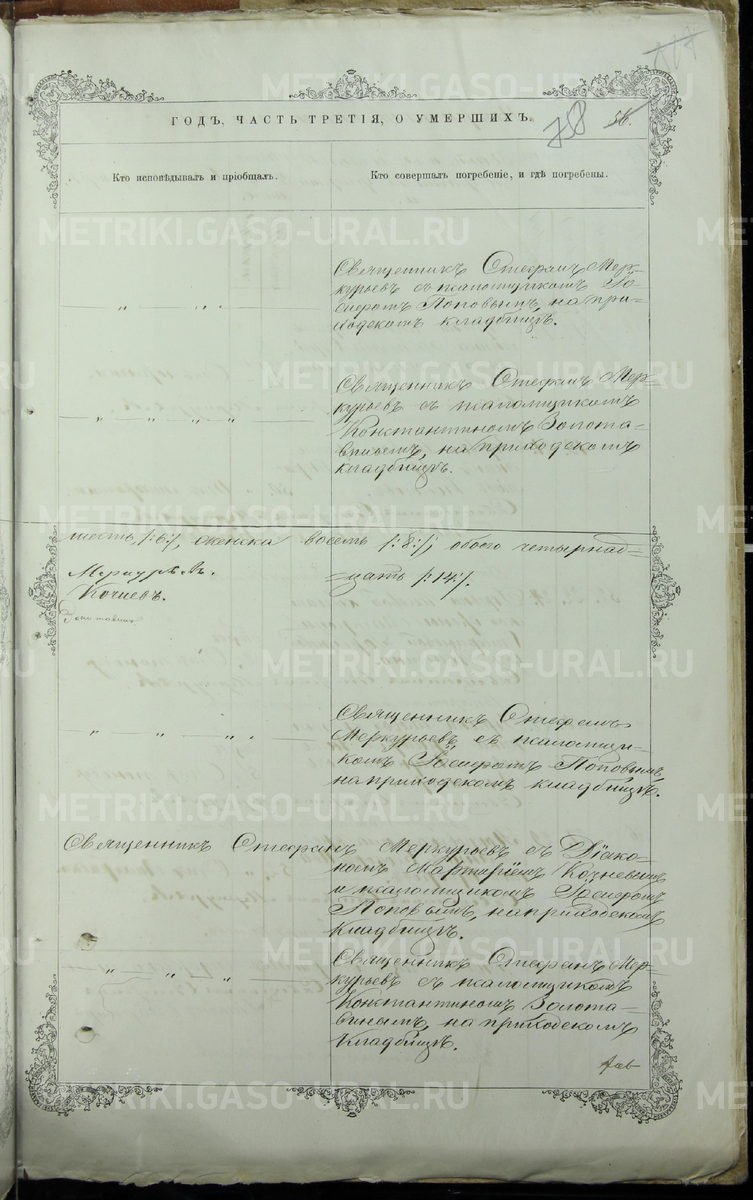 ГОДЪ, ЧАСТЬ ТРЕТІЯ, О УМЕРШИХЪ.
78 56.
Кто исповѣдывалъ и пріобщалъ.
Кто совершалъ погребеніе, и гдѣ погребены.
Священникъ Стефанъ Мер-
курьевъ съ псаломщикомъ Іо-
сифомъ Поповымъ, на при-
ходскомъ кладбищѣ.
Священникъ Стефанъ Мер-
курьевъ съ псаломщикомъ
Константиномъ Золота-
винымъ, на приходскомъ
кладбищѣ.
шесть /:6:/, женска восемь /:8:/, обоего четырнад-
=цать /:14:/.
Меркурьевъ.
Кочневъ.
Священникъ Стефанъ
Меркурьевъ, съ псаломщи-
комъ Іосифомъ Поповымъ,
на приходскомъ кладбищѣ.
Священникъ Стефанъ Меркурьевъ съ Діако-
номъ Мартиріемъ Кочневымъ
и псаломщикомъ Іосифомъ
Поповымъ, на приходскомъ
кладбищѣ.
Священникъ Стефанъ Мер-
курьевъ съ псаломщикомъ
Константиномъ Золота-
винымъ, на приходскомъ
кладбищѣ.
METRIKI.GASO-URAL.RU